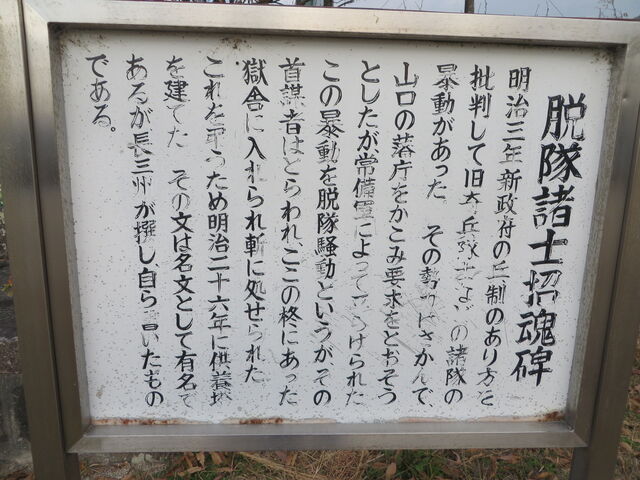 脱隊諸士招魂碑
明治三年新政府の兵制のあり方を
批判して旧奇兵隊などの諸隊の
暴動があった その勢はさかんで、
山口の藩庁をかこみ要求をとおそう
としたが常備軍によって うけられた
この暴動を脱隊騒動というがその
首謀者はとらわれ、ここの柊にあった
獄舎に入れられ斬に処せられた
これを弔うため明治二十六年に供養塔
を建てた その文は名文として有名で
あるが長三州が撰し、自ら書いたもの
である。